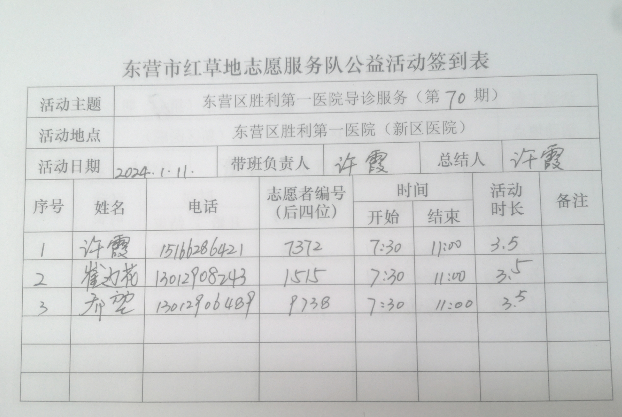 东营市红草地志愿服务队公益活动签到表
活动主题 东营区胜利第一医院导诊服务（第70期）
活动地点 东营区胜利第一医院（新区医院）
活动日期 2024.1.11. 带班负责人 许霞 总结人 许霞
序号 姓名 电话 志愿者编号（后四位） 时间 开始 结束 活动时长 备注
1 许霞 15166286421 7372 7:30 11:00 3.5
2 13012908243 1515 7:30 11:00 3.5
3 希望 13012906489 9738 7:30 11:00 3.5